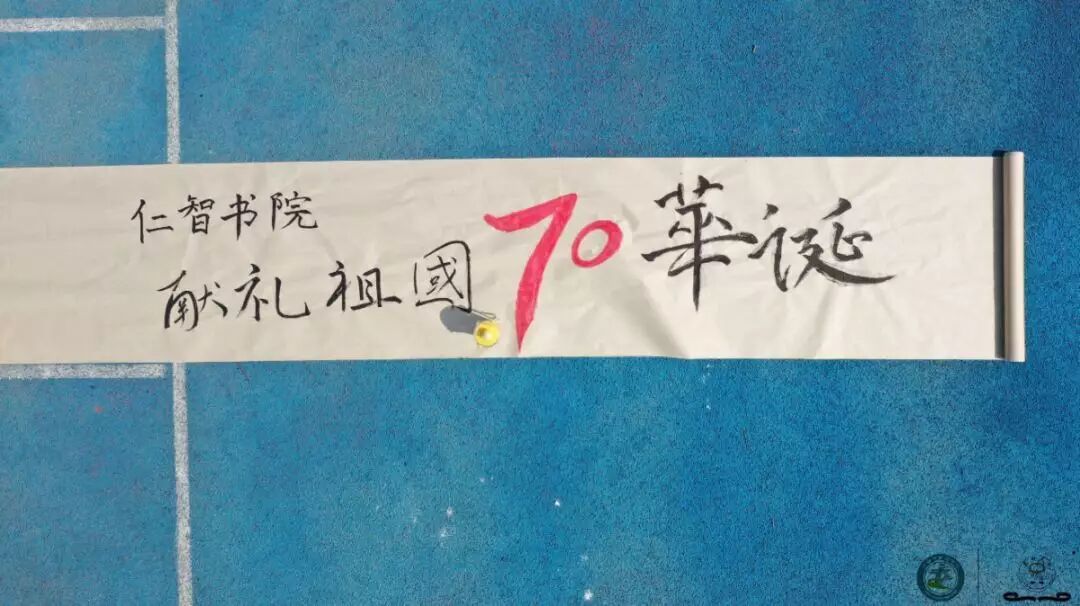 仁智书院
献礼祖國70華诞